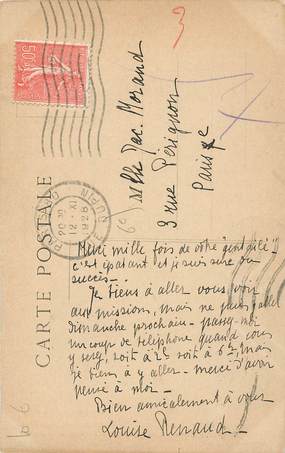 CARTE POSTALE
50c
PARIS
R. DUPIN
20 30
12 · XI
1926
3
Mlle Jac. Morand
3 rue Pérignon
Paris
Merci mille fois de votre gentillesse
c'est épatant et je suis sure du
succès —
Je tiens à aller vous voir
aux missions, mais ne puis
dimanche prochain — passez-moi
un coup de téléphone quand vous
y serez, soit à 2h soit à 6h, mais
je tiens à y aller — merci d'avoir
pensé à moi —
Bien amicalement à vous
Louise Renaud